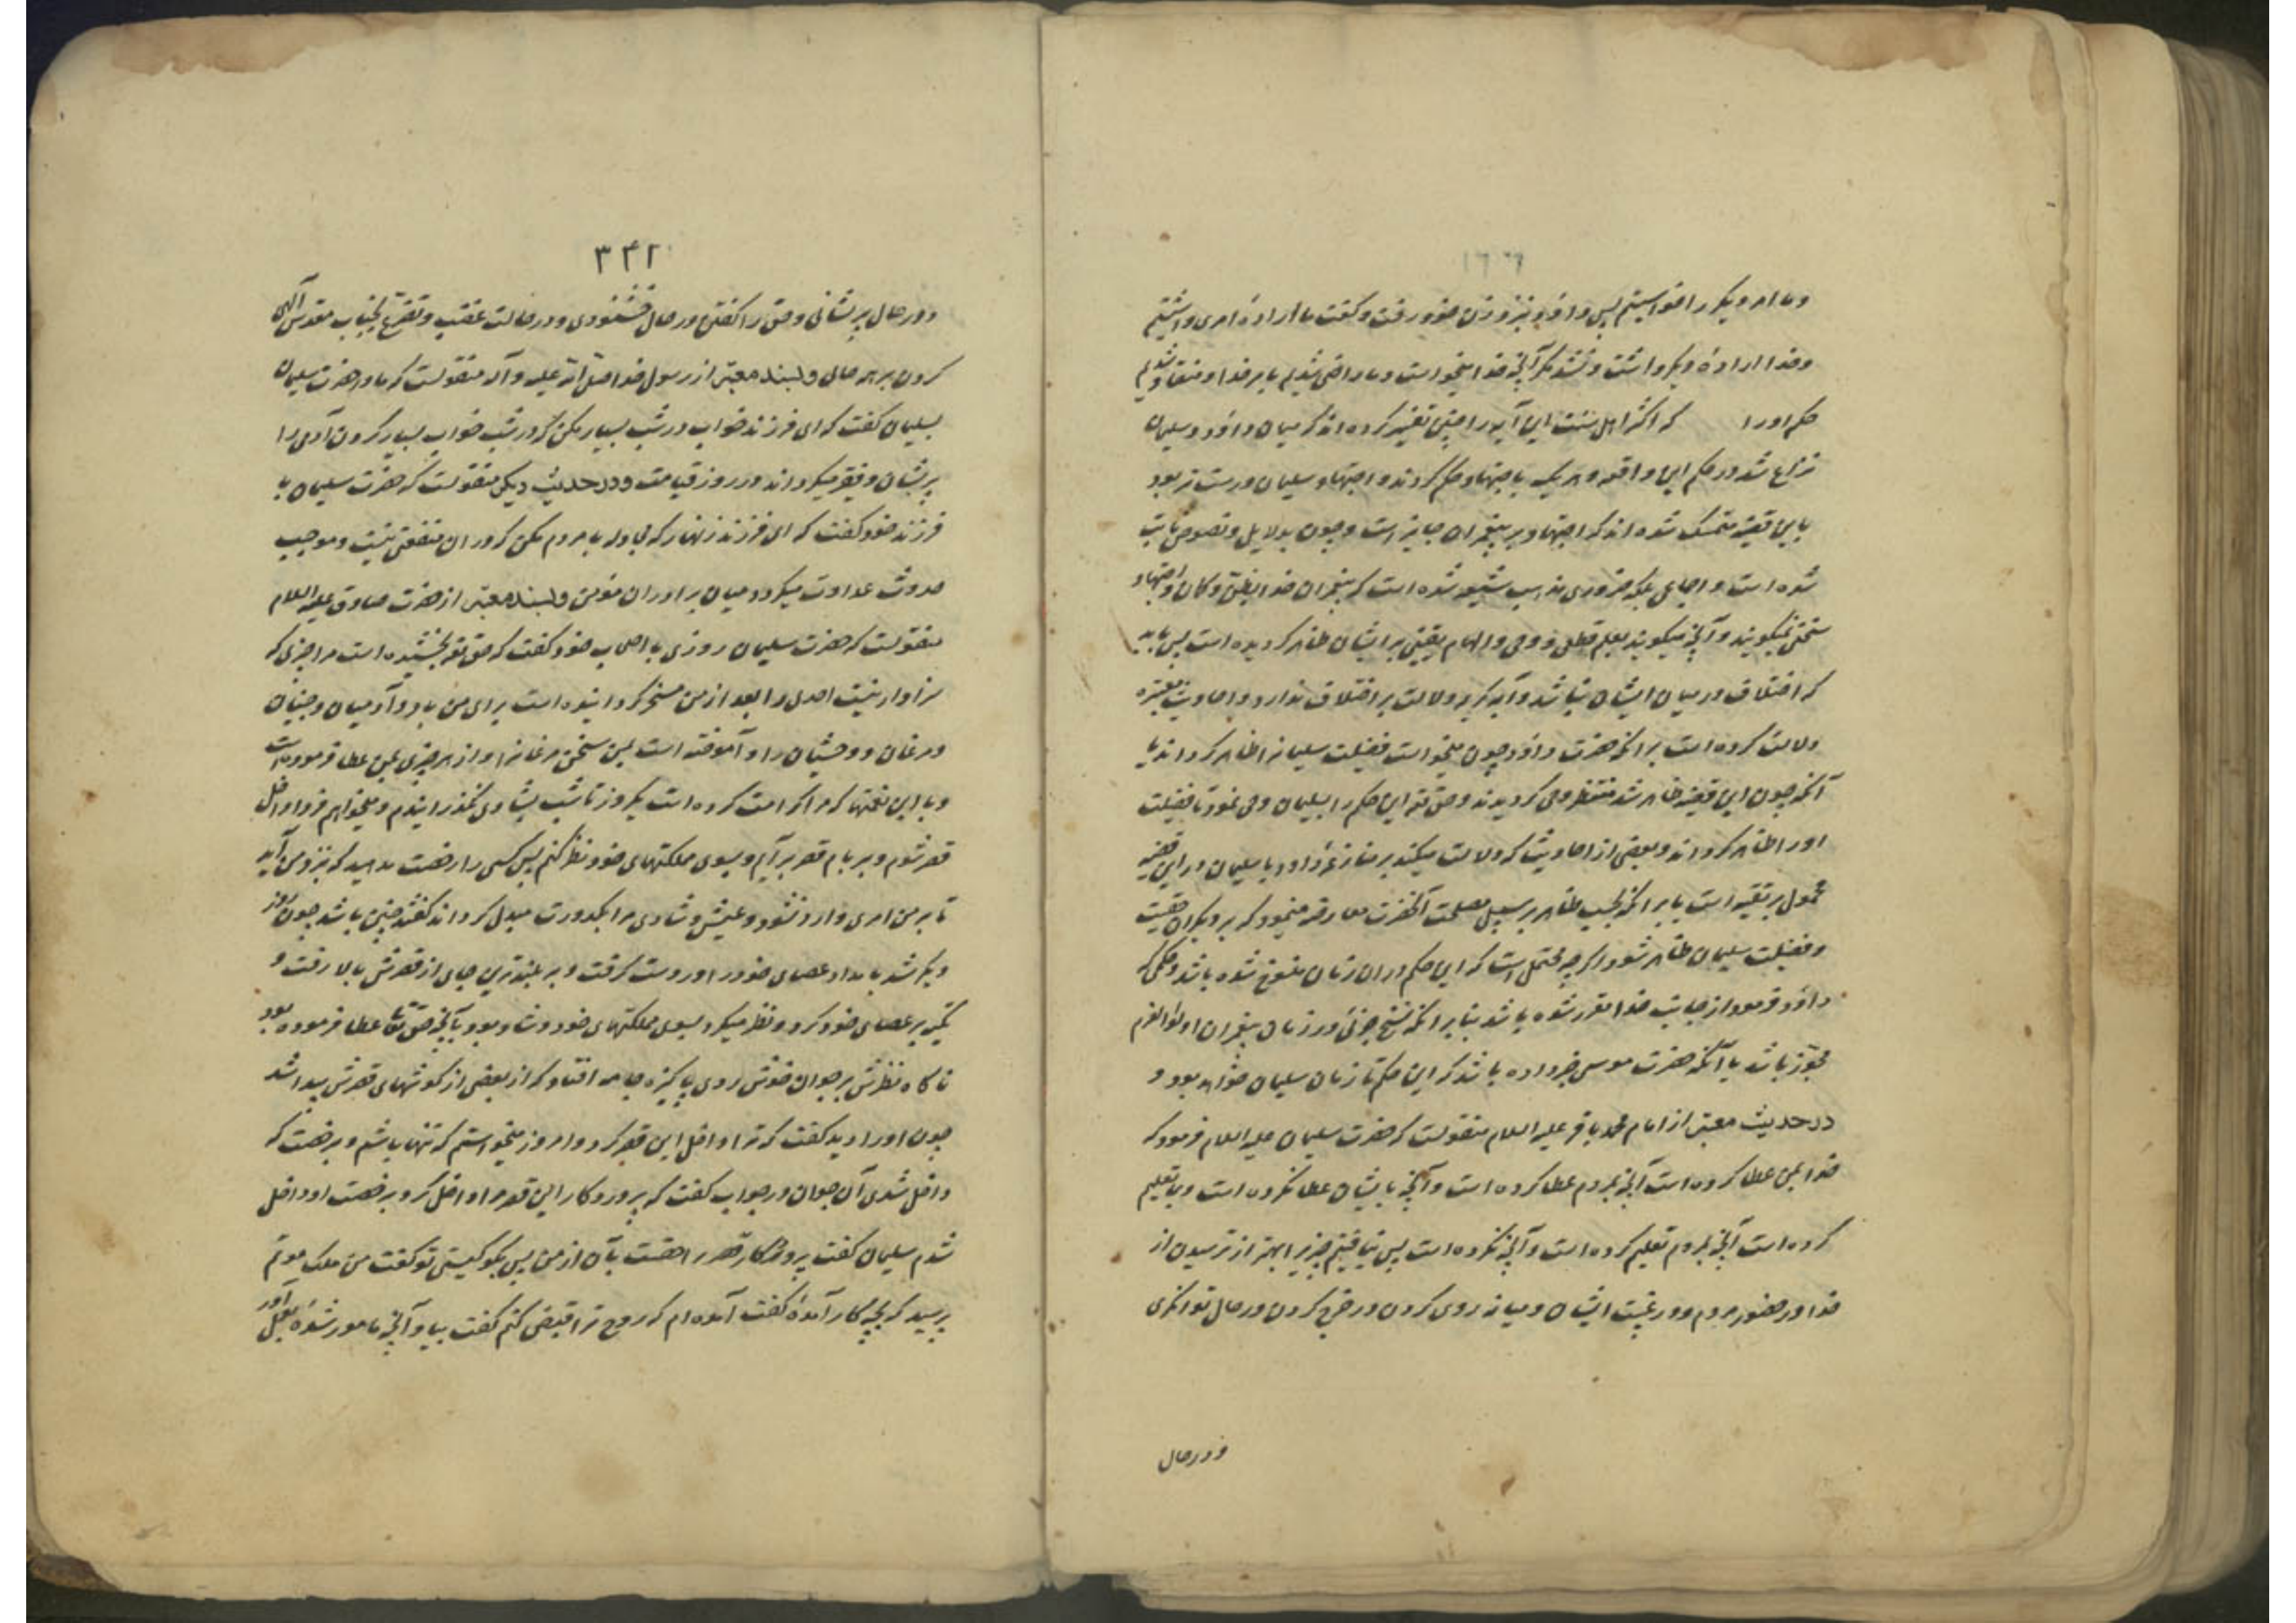 وما امر دیگر را خواستیم پس داود بنزد زن خود رفت و گفت ما اراده امری داشتیم
و خدا اراده دیگر داشت و نشد مگر آنچه خدا میخواست و ما راضی شدیم بامر خدا و منقاد شدیم
حکم او را که اکثر اهل سنت این آیه را چنین تفسیر کرده اند که میان داود و سلیمان
نزاع شد در حکم این واقعه و هر یک باجتهاد حکم کردند و اجتهاد سلیمان درست تر بود
باین قصه متمسک شده اند که اجتهاد بر پیغمبران جایز است و چون بدلایل و نصوص ثابت
شده است و اجماعی بلکه ضروری مذهب شیعه شده است که پیغمبران خدا بظن و گمان و اجتهاد
سخن نمیگویند و آنچه میگویند بعلم قطعی و وحی و الهام یقینی بر ایشان ظاهر گردیده است پس باید
که اختلاف در میان ایشان نباشد و آیه کریمه دلالت بر اختلاف ندارد و احادیث معتبره
دلالت کرده است بر آنکه حضرت داود چون میخواست فضیلت سلیمان را ظاهر گرداند یا
آنکه چون این قضیه ظاهر شد منتظر وحی گردیدند و حق تعه این حکم را بسلیمان وحی نمود تا فضیلت
او را ظاهر گرداند و بعضی از احادیث که دلالت میکند بر منازعه داود با سلیمان در این قضیه
محمول بر تقیه است یا بر آنکه بحسب ظاهر بر سبیل مصلحت آنحضرت معارضه مینمود که بر دیگران حقیت
و فضیلت سلیمان ظاهر شود و اگر چه محتمل است که این حکم در ان زمان منسوخ شده باشد و حکمی که
داود فرمود از جانب خدا مقرر شده باشد بنا بر آنکه نسخ جزئی در زمان پیغمبران اولوالعزم
مجوز باشد یا آنکه حضرت موسی خبر داده باشد که این حکم تا زمان سلیمان خواهد بود و
در حدیث معتبر از امام محمد باقر علیه السلام منقولست که حضرت سلیمان علیه السلام فرمود که
خدا بمن عطا کرده است آنچه بمردم عطا کرده است و آنچه بایشان عطا نکرده است و بما تعلیم
کرده است آنچه بمردم تعلیم کرده است و آنچه نکرده است پس نیافتیم چیزیرا بهتر از ترسیدن از
خدا در حضور مردم و در غیبت ایشان و میانه روی کردن در خرج کردن در حال توانگری
و در حال
۳۴۲
و در حال پریشانی و حق را گفتن در حال خشنودی و در حالت غضب و تضرع بجناب مقدس آلهی
کردن بر هر حالی و بسند معتبر از رسول خدا صلی الله علیه و آله منقولست که مادر حضرت سلیمان
بسلیمان گفت که ای فرزند خواب در شب بسیار مکن که در شب خواب بسیار کردن آدمی را
پریشان و فقیر میگرداند در روز قیامت و در حدیث دیگر منقولست که حضرت سلیمان با
فرزند خود گفت که ای فرزند زنهار که مجادله با مردم مکن که در ان منفعتی نیست و موجب
حدوث عداوت میگردد میان برادران مؤمن و بسند معتبر از حضرت صادق علیه السلام
منقولست که حضرت سلیمان روزی با اصحاب خود گفت که حق تعه بخشیده است مرا چیزی که
سزاوار نیست احدی را بعد از من مسخر گردانیده است برای من باد و آدمیان و جنیان
و مرغان و وحشیان را و آموخته است بمن سخن مرغانرا و از هر چیزی بمن عطا فرموده است
و با این نعمتها که مرا کرامت کرده است یکروز تا شب بشادی نگذرانیدم و میخواهم فردا داخل
قصر شوم و بر بام قصر برآیم و بسوی مملکتهای خود نظر کنم پس کسی را رخصت مدهید که نزد من آید
تا بر من امری وارد نشود و عیش و شادی مرا بکدورت مبدل گرداند گفتند چنین باشد چون روز
دیگر شد بامداد عصای خود را در دست گرفت و بر بلندترین جای از قصرش بالا رفت و
تکیه بر عصای خود کرد و نظر میکرد بسوی مملکتهای خود و شاد بود بآنچه حق تعا عطا فرموده بود
ناگاه نظرش بر جوان خوش روی پاکیزه جامه افتاد که از بعضی از گوشهای قصرش پیدا شد
چون او را دید گفت که ترا داخل این قصر کرد و امروز میخواستم که تنها باشم و برخصت که
داخل شدی آن جوان در جواب گفت که پروردگار این قصر مرا داخل کرد و برخصت او داخل
شدم سلیمان گفت پروردگار قصر احقست بآن از من پس بگو کیستی تو گفت من ملک موتم
پرسید که بچه کار آمدهٔ گفت آمده ام که روح ترا قبض کنم گفت بیا و آنچه مامور شدهٔ بعمل آور